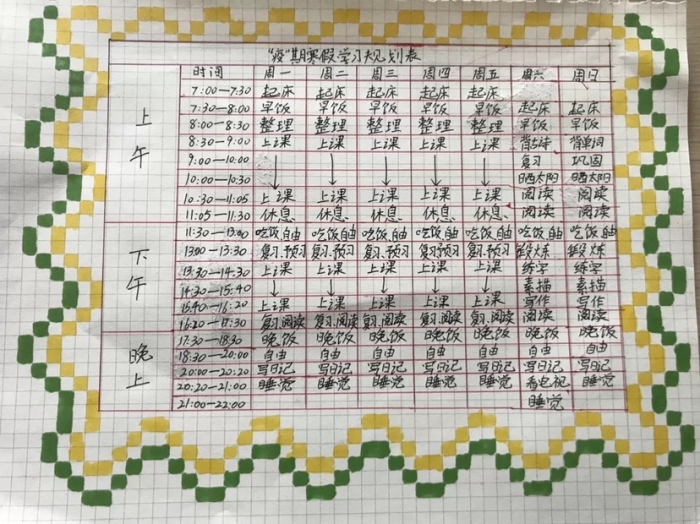 "疫"期寒假学习规划表
时间 周一 周二 周三 周四 周五 周六 周日
上午
7:00—7:30 起床 起床 起床 起床 起床
7:30—8:00 早饭 早饭 早饭 早饭 早饭 起床 起床
8:00—8:30 整理 整理 整理 整理 整理 早饭 早饭
8:30—9:00 上课 上课 上课 上课 上课 背单词
9:00—10:00 复习 巩固
10:00—10:30 晒太阳 晒太阳
10:30—11:05 上课 上课 上课 上课 上课 阅读 阅读
11:05—11:30 休息 休息 休息 休息 休息 阅读 阅读
下午
11:30—13:00 吃饭,自由 吃饭,自由 吃饭,自由 吃饭,自由 吃饭,自由 吃饭,自由 吃饭,自由
13:00—13:30 复习.预习 复习.预习 复习.预习 复习.预习 复习.预习 锻炼 锻炼
13:30—14:30 上课 上课 上课 上课 上课 练字 练字
14:30—15:40 素描 素描
15:40—16:20 上课 上课 上课 上课 上课 写作 写作
16:20—17:30 复习.阅读 复习.阅读 复习.阅读 复习.阅读 复习.阅读 阅读 阅读
晚上
17:30—18:30 晚饭 晚饭 晚饭 晚饭 晚饭 晚饭 晚饭
18:30—20:00 自由 自由 自由 自由 自由 自由 自由
20:00—20:20 写日记 写日记 写日记 写日记 写日记 写日记 写日记
20:20—21:00 睡觉 睡觉 睡觉 睡觉 睡觉 看电视 睡觉
21:00—22:00 睡觉